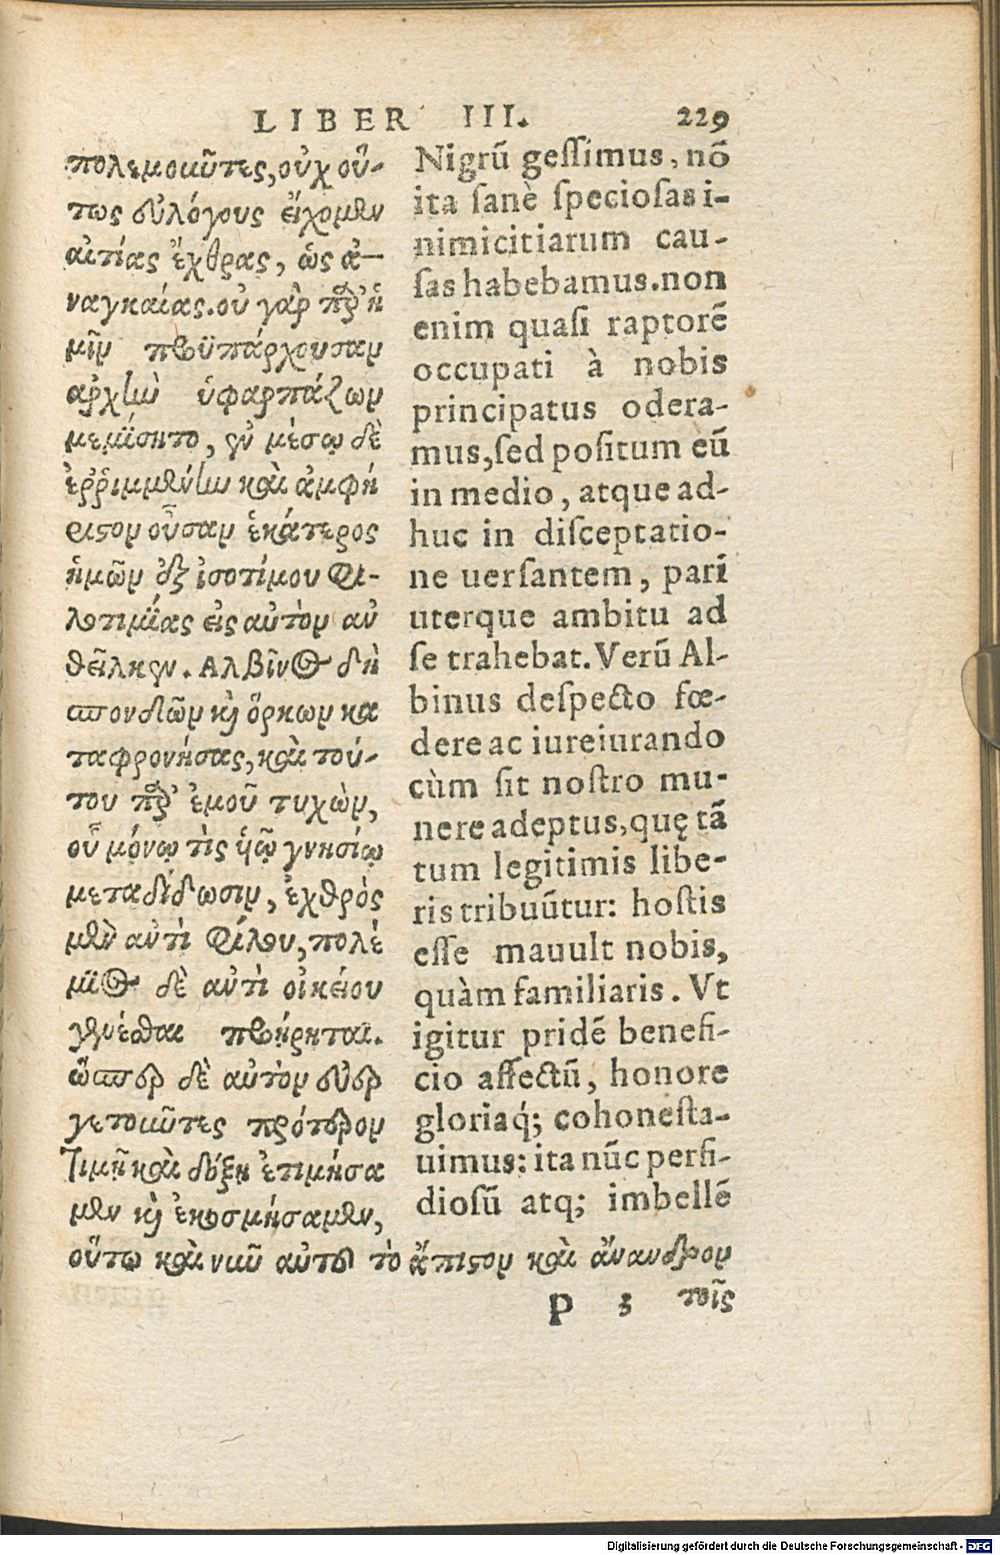 LIBER III. 229
πολεμοῦντες, οὐχ οὕ-
τως εὐλόγους εἴχομεν
αἰτίας ἔχθρας, ὡς ἀ-
ναγκαίας. οὐ γὰρ πρὸς ἡ
μῖν προϋπάρχουσαν
ἀρχὴν ὑφαρπάζων
μεμίσητο, ἐν μέσῳ δὲ
ἐῤῥιμμένην καὶ ἀμφή
ριστον οὖσαν ἑκάτερος
ἡμῶν ἐξ ἰσοτίμου φι-
λοτιμίας εἰς αὑτὸν ἀν
θεῖλκεν. Αλβῖνος δὴ
σπονδῶν καὶ ὅρκων κα
ταφρονήσας, καὶ τού-
του παρ' ἐμοῦ τυχὼν,
οὗ μόνῳ τὶς υἱῷ γνησίῳ
μεταδίδωσιν, ἐχθρὸς
μὲν ἀντὶ φίλου, πολέ
μιος δὲ ἀντὶ οἰκείου
γενέσθαι προῄρηται.
ὥσπερ δὲ αὐτὸν εὐερ
γετοῦντες πρότερον
τιμῇ καὶ δόξῃ ἐτιμήσα
μεν καὶ ἐκοσμήσαμεν,
οὕτω καὶ νῦν αὐτοῦ τὸ ἄπιστον καὶ ἄνανδρον
Nigrũ gessimus, nõ
ita sanè speciosas i-
nimicitiarum cau-
sas habebamus. non
enim quasi raptorẽ
occupati à nobis
principatus odera-
mus, sed positum eũ
in medio, atque ad-
huc in disceptatio-
ne uersantem, pari
uterque ambitu ad
se trahebat. Verũ Al-
binus despecto fœ-
dere ac iureiurando
cùm sit nostro mu-
nere adeptus, quę tã
tum legitimis libe-
ris tribuũtur: hostis
esse mauult nobis,
quàm familiaris. Vt
igitur pridẽ benefi-
cio affectũ, honore
gloriaq́; cohonesta-
uimus: ita nũc perfi-
diosũ atq; imbellẽ
P 3 τοῖς
Digitalisierung gefördert durch die Deutsche Forschungsgemeinschaft - DFG